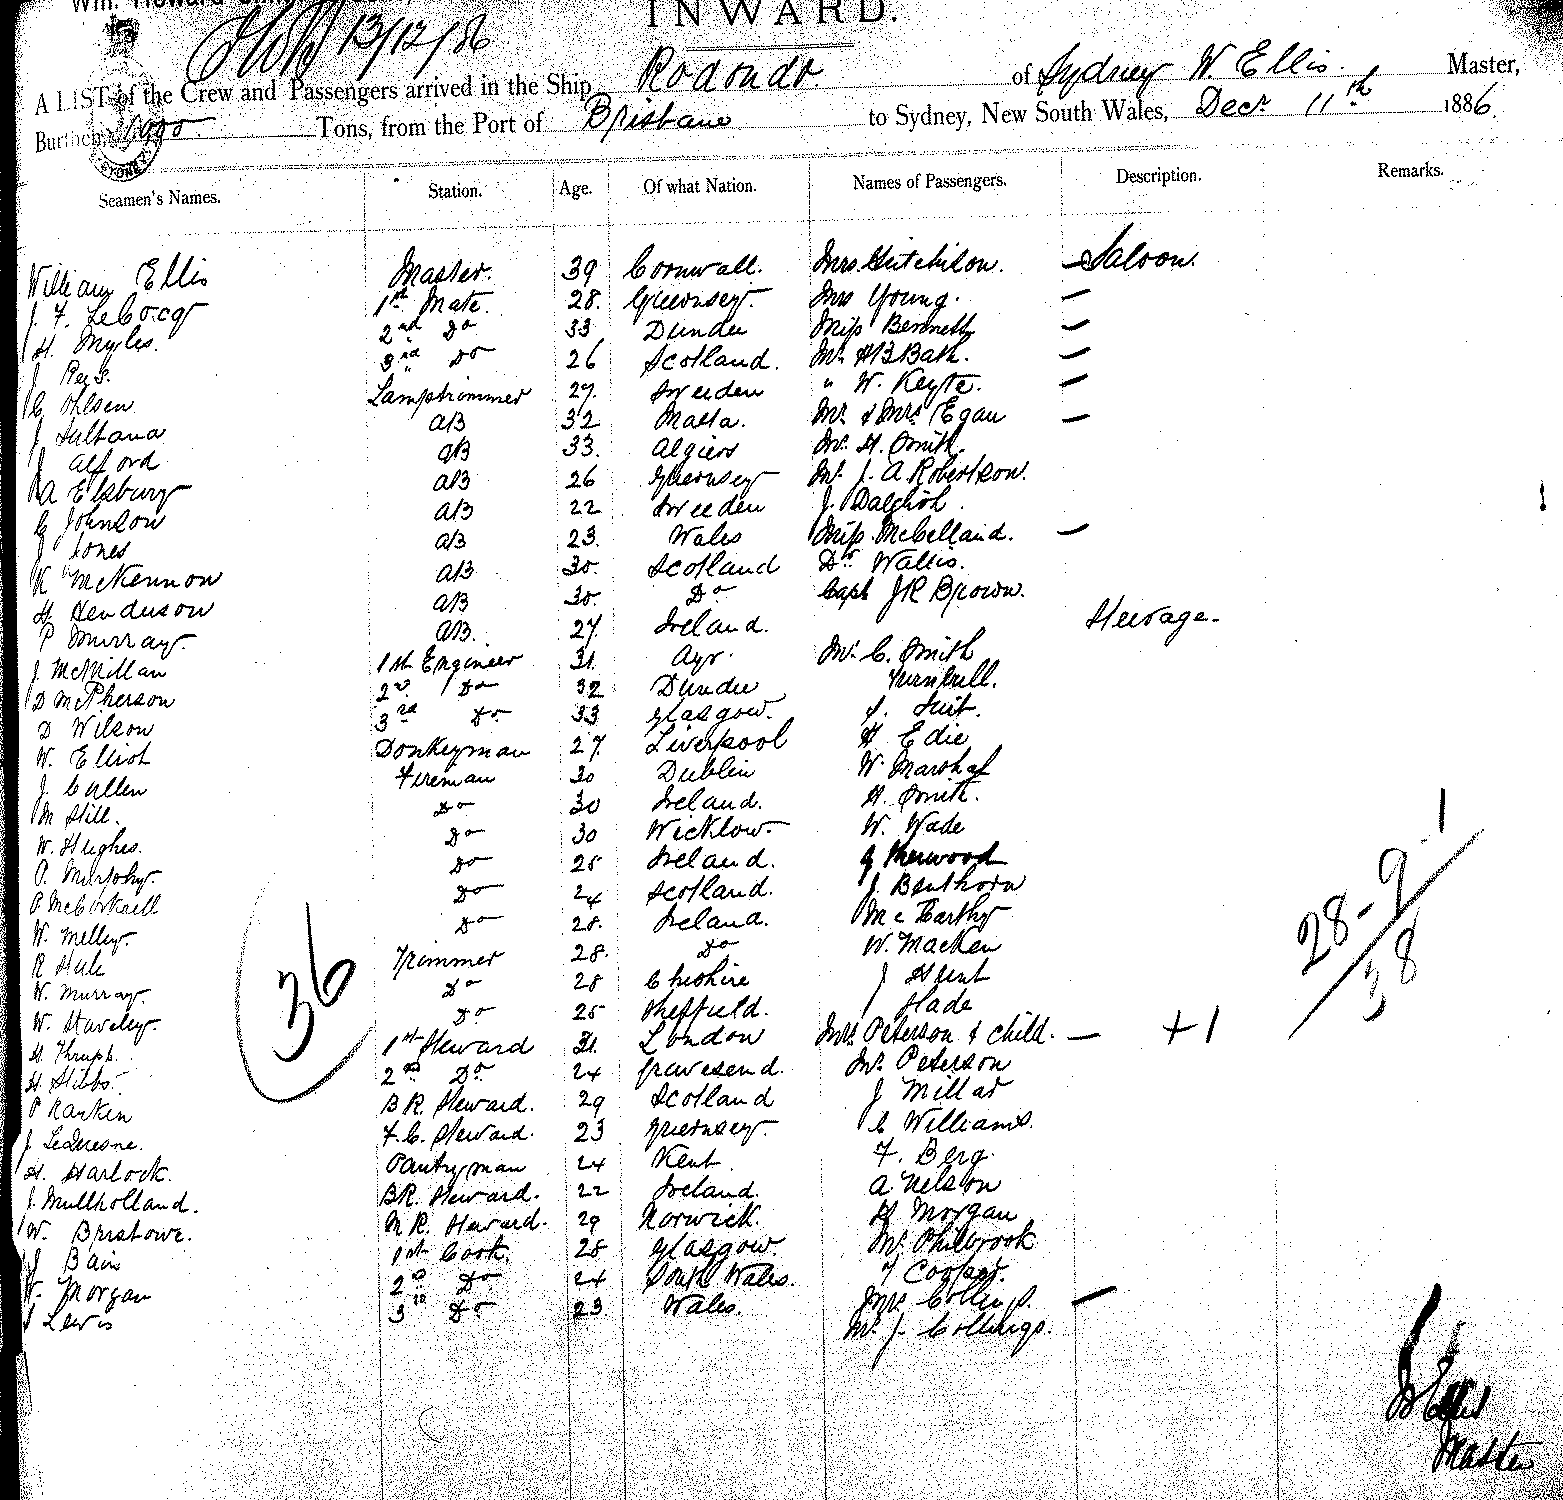 INWARD.
13/12/86
A LIST of the Crew and Passengers arrived in the Ship Rodondo. of Sydney W. Ellis. Master,
Burthen, Tons, from the Port of Brisbane to Sydney, New South Wales, Decr. 11th 1886.
Seamen's Names. Station. Age. Of what Nation. Names of Passengers. Description. Remarks.
William Ellis Master. 39 Cornwall. Mrs. Hutchison. — Saloon.
J. F. LeCocq 1st Mate. 28. Guernsey. Mrs Young. —
H. Myles. 2nd Do 33 Dundee Miss Bennett —
J Rees. 3rd Do 26 Scotland. Mr. HB Bath. —
C Ohlsen Lamptrimmer 27. Sweeden " W. Keyte. —
J Sultana AB 32 Malta. Mr. & Mrs Egan —
J Alford AB 33. Algiers Mr. H. Smith.
A Elsburg AB 26 Guernsey Mr. J. A Robertson.
G Johnson AB 22 Sweeden J. Dalglish.
J Jones AB 23. Wales Miss McClelland. —
K McKennow AB 30. Scotland Dr. Wallis.
H Henderson AB 30. Do Capt JR Brown.
P Murray. AB. 27. Ireland. Steerage.
J. McMillan 1st Engineer 31. Ayr. Mr. C. Smith
D McPherson 2nd Do 32 Dundee Turnbull.
D Wilson 3rd Do 33 Glasgow. S. Suit.
W. Elliot Donkeyman 27. Liverpool H Edie
J. Cullen Fireman 30 Dublin W. Marshal
M Hill. Do 30 Ireland. H. Smith.
W. Hughes. Do 30 Wicklow. W. Wade
P. Murphy. Do 25 Ireland. G Sherwood
P McCorkell Do 24 Scotland. J. Benthorn
W. Melley. Do 28. Ireland. McCarthy
R Hale Trimmer 28. Do W. Macken
W. Murray. Do 28 Cheshire J Hunt
W. Staveley. Do 25 Sheffield. Slade
H. Thrupp. 1st Steward 31. London Mrs. Peterson & child. — +1
H Stibbs. 2nd Do. 24 Gravesend. Mr. Peterson
P Rankin B R. Steward. 29 Scotland J Millar
J LeQuesne. F. C. Steward. 23 Guernsey. C Williams.
H. Harlock. Pantryman 24 Kent. F. Berg.
J. Mullholland. BR. Steward. 22 Ireland. A. Nelson
W. Bristowe. M R. Steward. 29 Norwick. H Morgan
J Bain 1st Cook. 28 Glasgow. Mr. Philbrook
W. Morgan 2nd Do 24 South Wales. T Cooper.
S Lewis 3rd Do 23 Wales. Mrs Collings. —
Mr. J. Collings.
36
28-9-1
38
W Ellis
Master